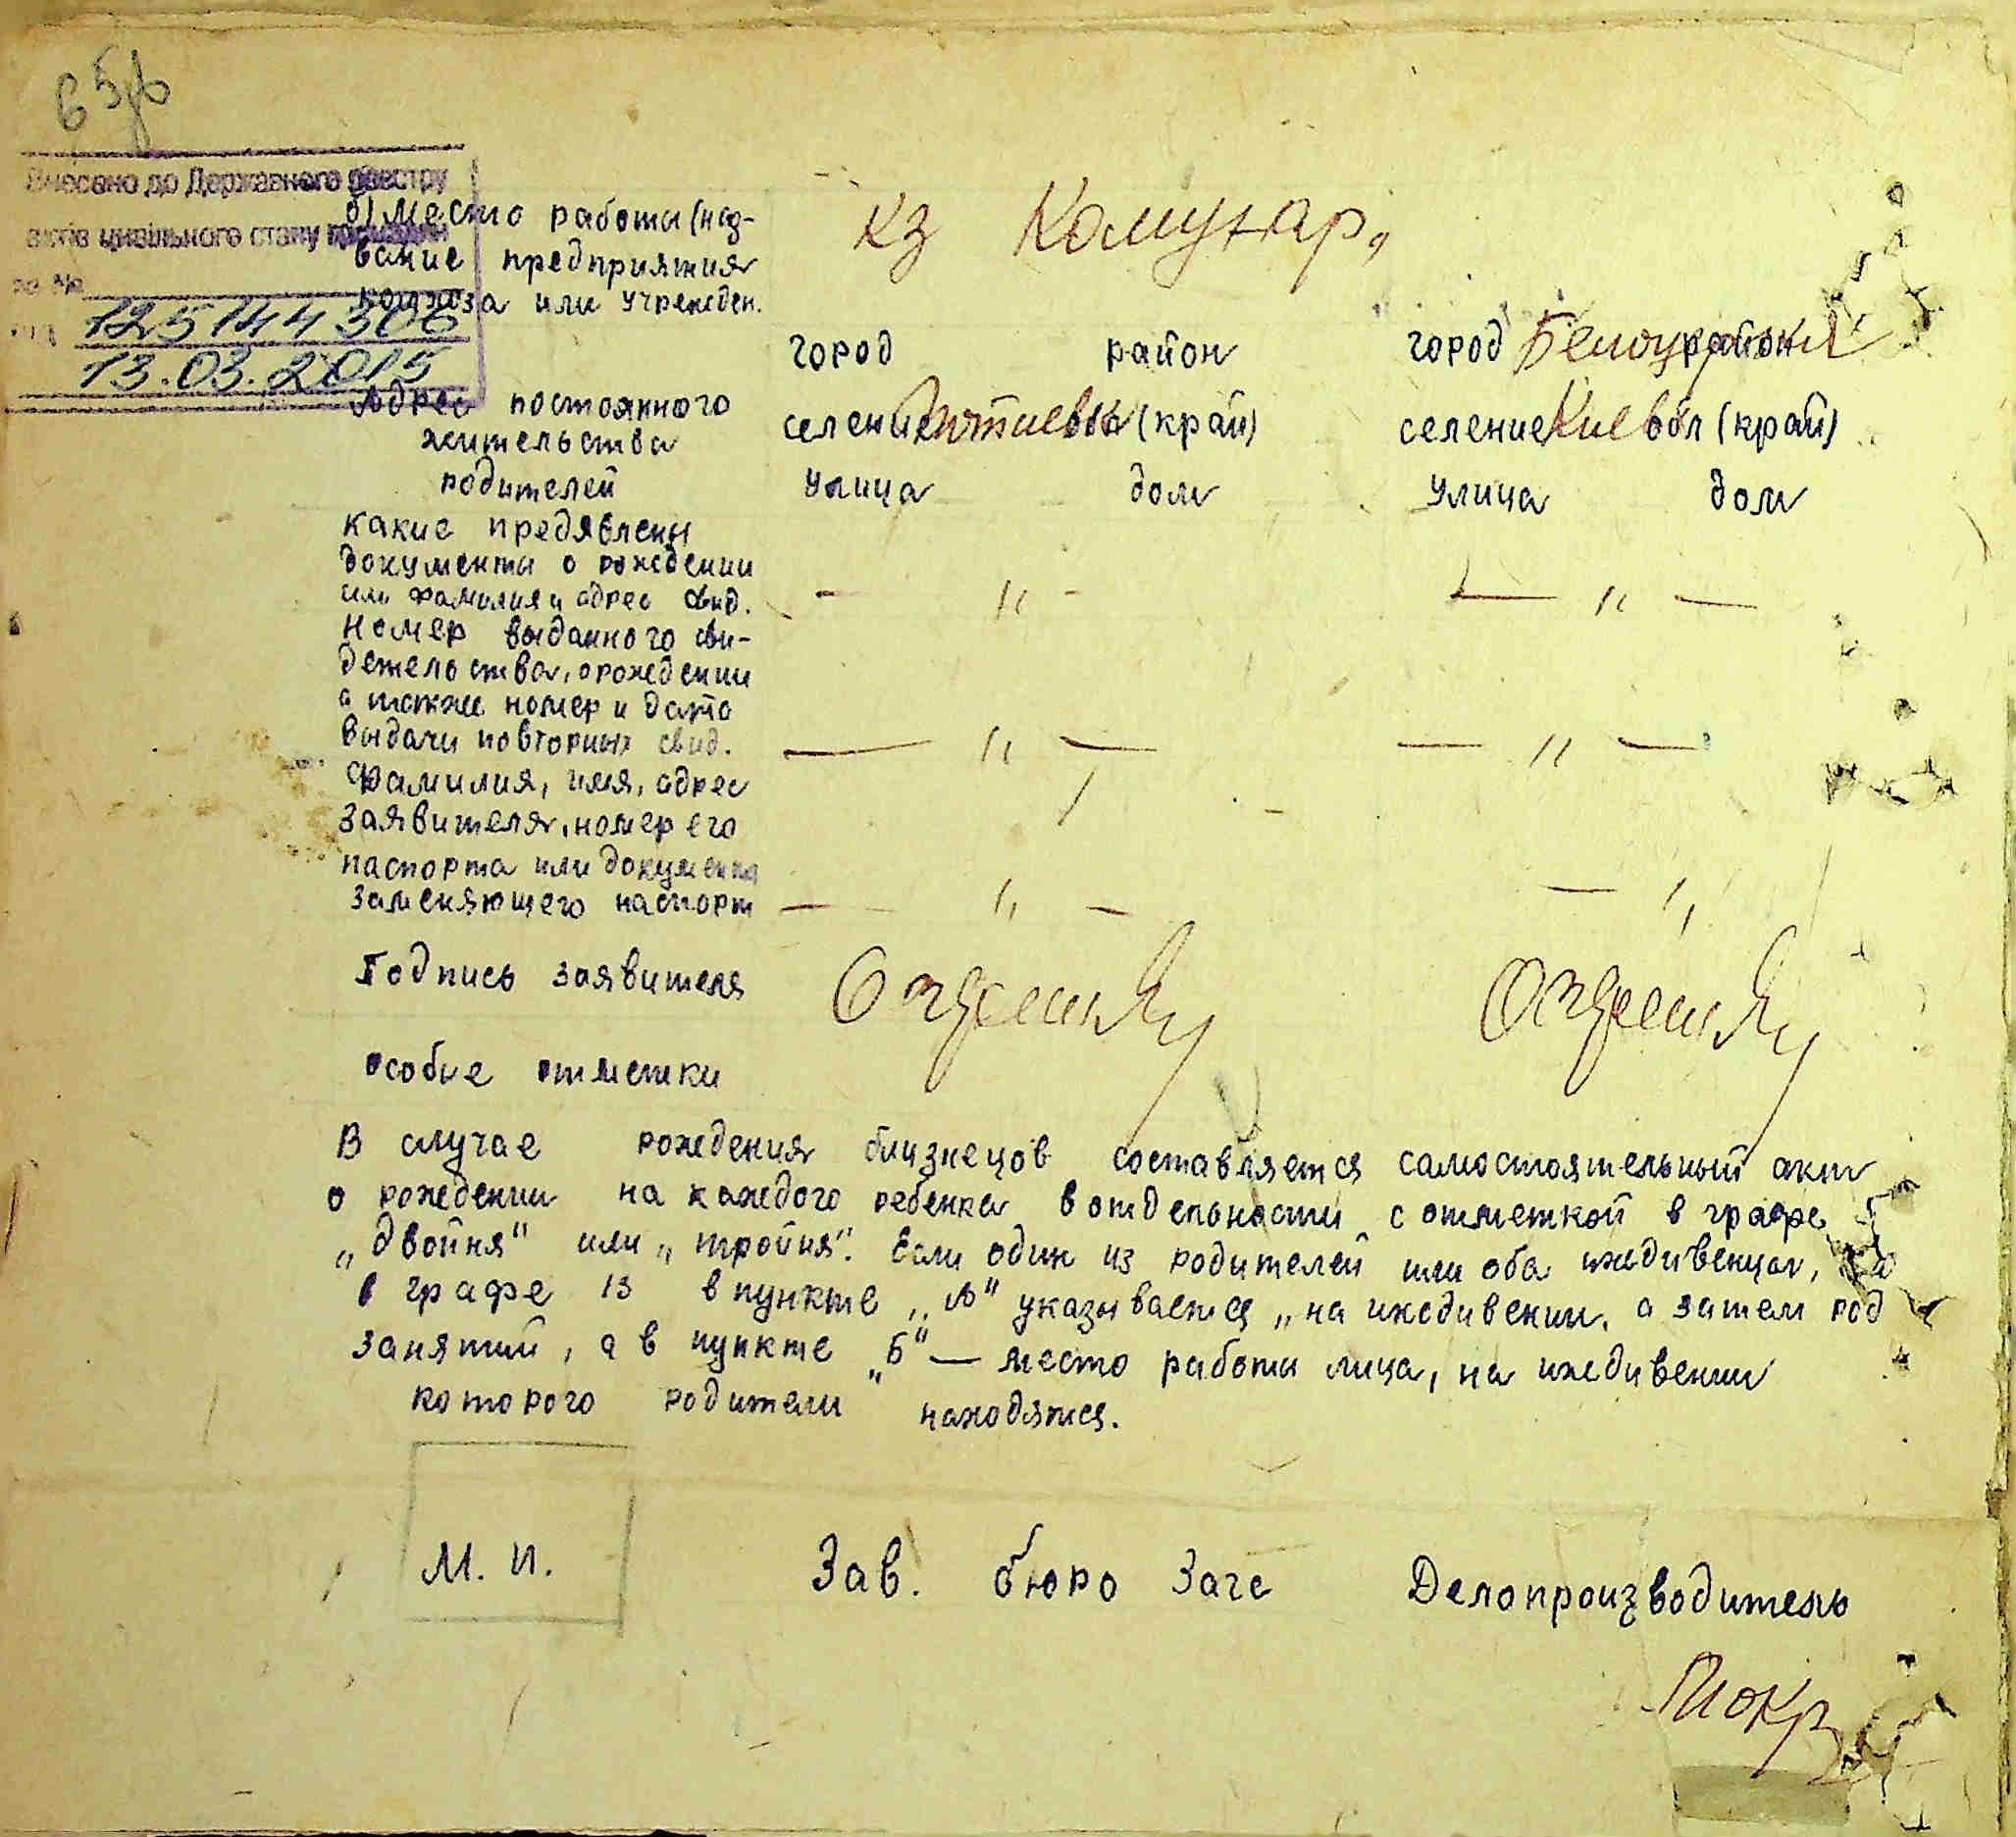 Внесено до Державного реєстру
актів цивільного стану громадян
за №
125144306
13.03.2015
б) Место работы (наз-
вание предприятия
колхоза или учрежден.
кз Комунар,
город район город район
Адрес постоянного
жительства
родителей
селение обл (край) селение Киев обл (край)
улица дом улица дом
какие предявлены
документы о рождении
или фамилия и адрес свид.
— " — — " —
Номер выданного сви-
детельства, о рождении
а также номер и дата
выдачи повторных свид.
— " — — " —
Фамилия, имя, адрес
заявителя, номер его
паспорта или документа
заменяющего паспорт
— " — — "
Подпись заявителя
особые отметки
В случае рождения близнецов составляется самостоятельный акт
о рождении на каждого ребенка в отдельности с отметкой в графе
„Двойня" или „тройня". Если один из родителей или оба иждивенцы,
в графе 13 в пункте „А" указывается „на иждивении, а затем род
занятий, а в пункте „Б" — место работы лица, на иждивении
которого родители находятся.
М. П.
Зав. бюро Загс Делопроизводитель